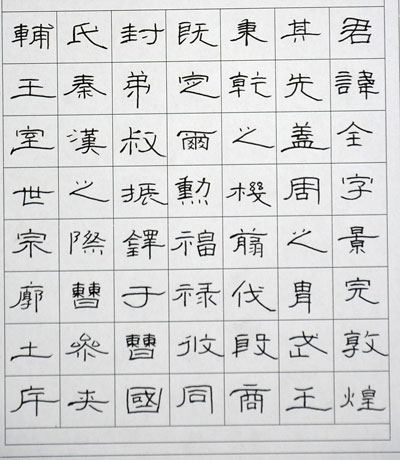 君諱全字景完敦煌
其先盖周之胄武王
秉乾之機翦伐殷商
既定爾勳福禄攸同
封弟叔振鐸于曹國
氏秦漢之際曹參夾
輔王室世宗廓土斥